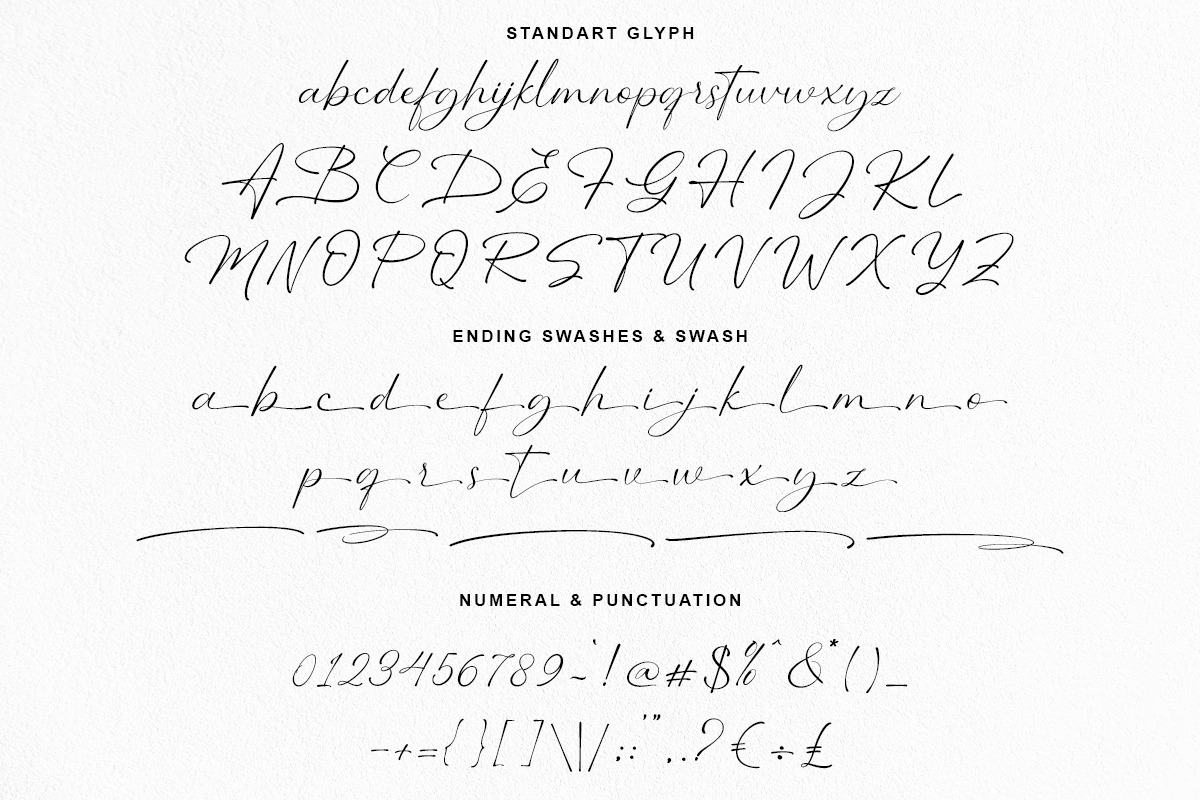 STANDART GLYPH
abcdefghijklmnopqrstuvwxyz
ABCDEFGHIJKL
MNOPQRSTUVWXYZ
ENDING SWASHES & SWASH
abcdefghijklmno
pqrstuvwxyz
NUMERAL & PUNCTUATION
0123456789~`!@#$%^&*()_
-+={}[]\|/;:'",.?€÷£